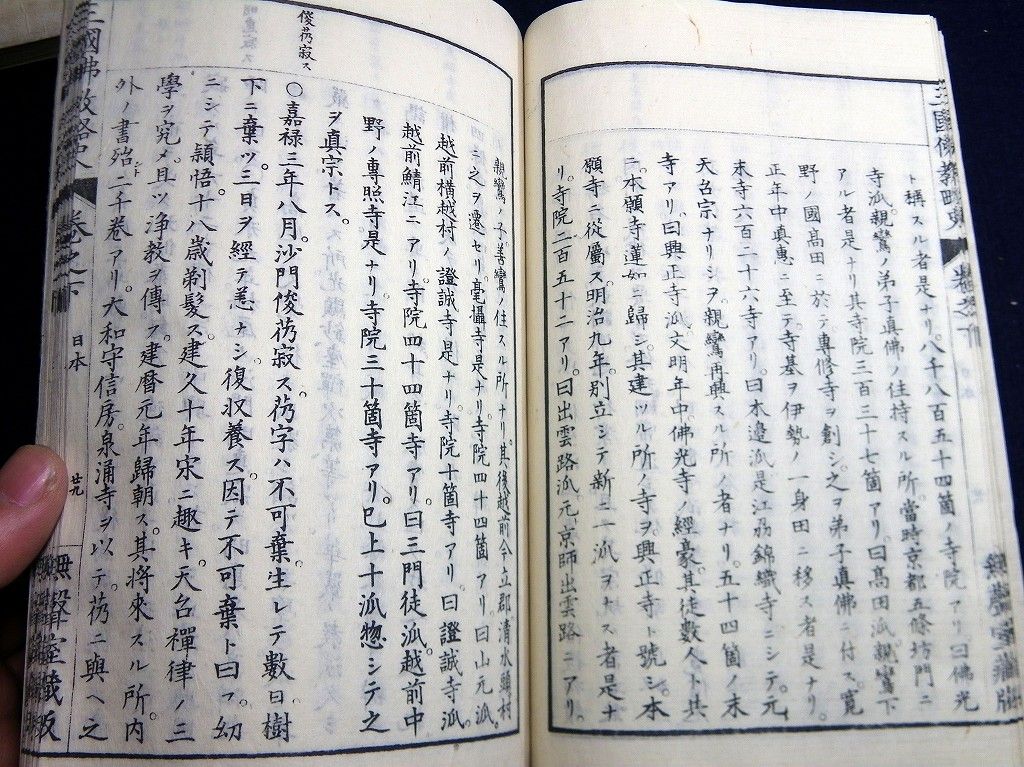 ト稱スル者是ナリ。八千八百五十四箇ノ寺院アリ曰佛光
寺派親鸞ノ弟子真佛ノ住持スル所。當時京都五條坊門ニ
アル者是ナリ其寺院三百三十七箇アリ。曰髙田派。親鸞下
野ノ國髙田ニ於テ專修寺ヲ創シ。之ヲ弟子真佛ニ付ス。寛
正年中真惠ニ至テ寺基ヲ伊勢ノ一身田ニ移ス者是ナリ。
末寺六百二十六寺アリ。曰木邊派是江劦錦織寺ニシテ。元
天台宗ナリシヲ。親鸞再興スル所ノ者ナリ。五十四箇ノ末
寺アリ。曰興正寺派文明年中。佛光寺ノ經豪。其徒數人ト共
ニ。本願寺蓮如ニ歸シ。其建ツル所ノ寺ヲ。興正寺ト號シ。本
願寺ニ從屬ス。明治九年。別立シテ新ニ一派ヲナス者是ナ
リ。寺院二百五十二アリ。曰出雲路派。元京師出雲路ニアリ。
三國佛教略史
卷之下
無聲堂藏版
親鸞ノ子善鸞ノ住スル所ナリ。其後越前今立郡清水頭村
ニ之ヲ遷セリ。毫攝寺是ナリ寺院四十四箇アリ曰山元派。
越前横越村ノ證誠寺是ナリ寺院十箇寺アリ。曰證誠寺派。
越前鯖江ニアリ。寺院四十四箇寺アリ。曰三門徒派。越前中
野ノ專照寺是ナリ。寺院三十箇寺アリ。巳上十派惣シテ之
ヲ真宗トス。
俊芿寂ス
○嘉禄三年八月。沙門俊芿寂ス。芿字ハ不可棄生レテ數日樹
下ニ棄ツ。三日ヲ經テ恙ナシ。復収養ス。因テ不可棄ト曰フ。幼
ニシテ頴悟。十八歳剃髮ス。建久十年宋ニ趣キ。天台禪律ノ三
學ヲ究メ。且ツ浄教ヲ傳フ。建暦元年歸朝ス。其将來スル所内
外ノ書殆ント二千卷アリ。大和守信房。泉涌寺ヲ以テ。芿ニ與ヘ之
三國佛教略史
卷之下
日本
廿九
無聲堂藏版